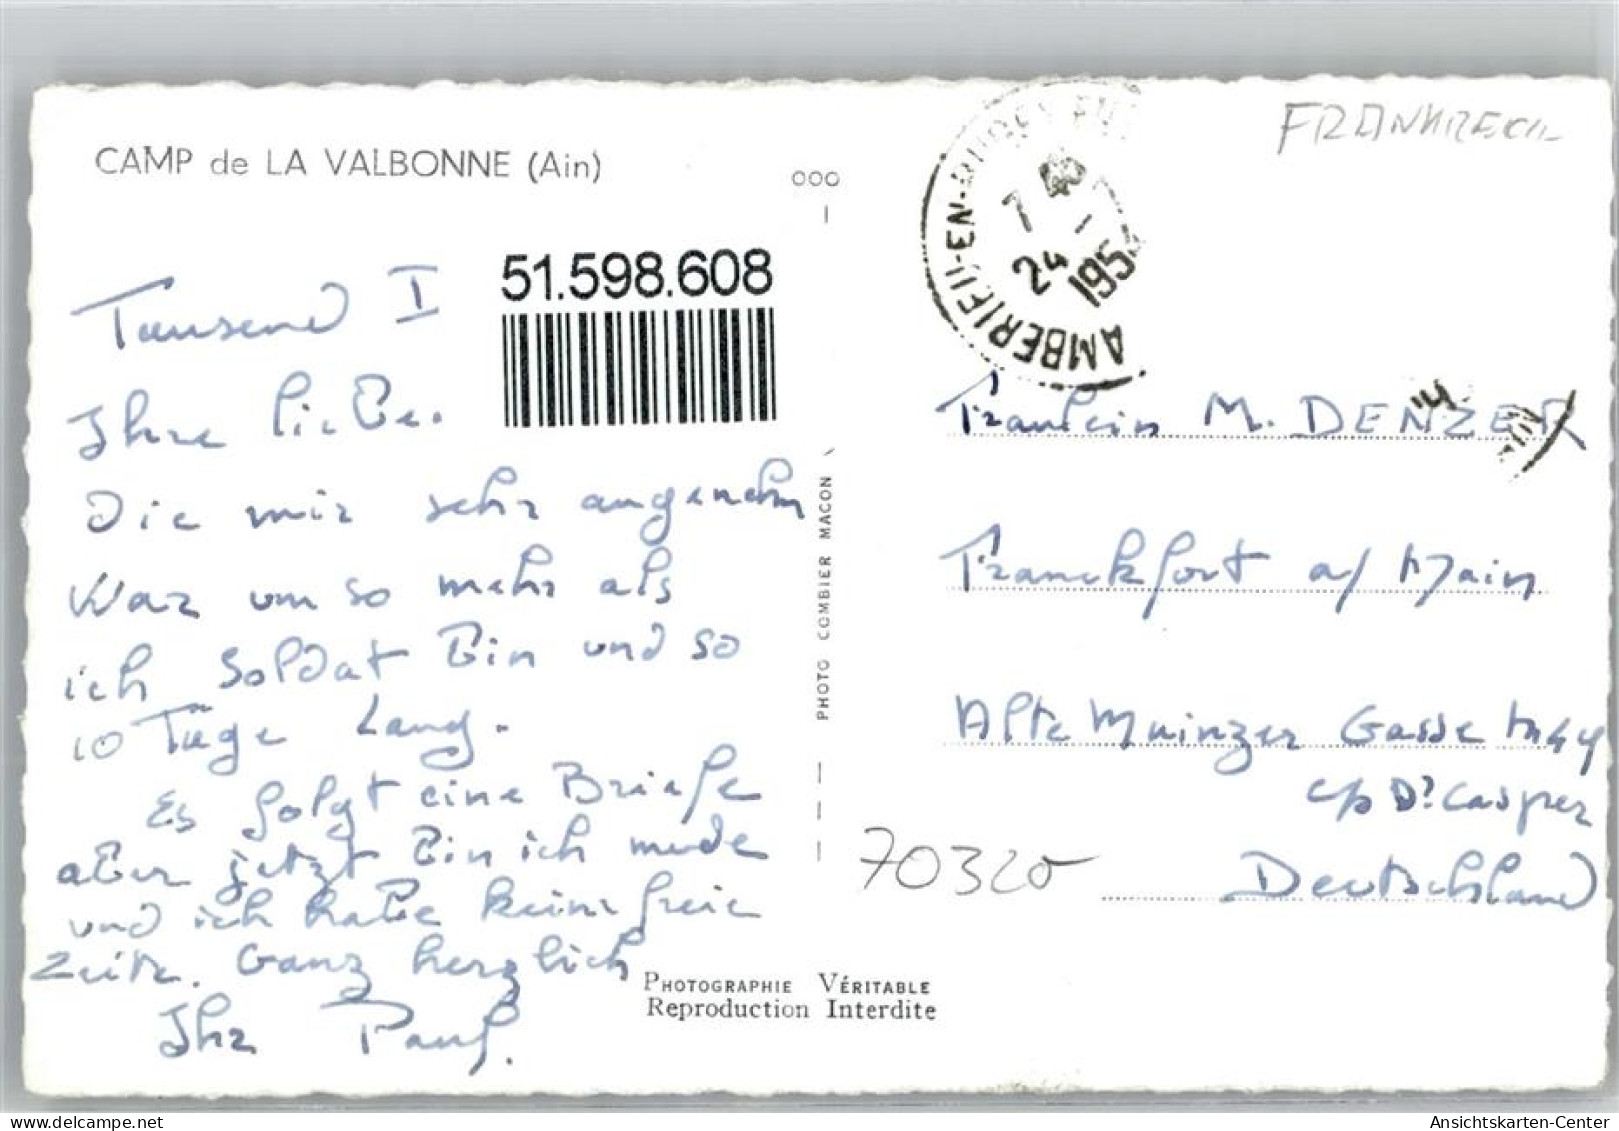 CAMP de LA VALBONNE (Ain)
000
FRANKREICH
AMBERIEU-EN-BUGEY
7 40
24 - 1
195
51.598.608
Tausend I
Ihre liebe.
Die mir sehr angenehm
War um so mehr als
ich Soldat bin und so
10 Tage Lang.
Es folgt eine Briefe
aber jetzt bin ich mude
und ich habe keine freie
Zeite. Ganz herzlich
Ihr Paul.
PHOTO COMBIER MACON
Fraulein M. DENZER
Franckfort a/ Main
Alte Mainzer Gasse
c/o Dr Casper
Deutschland
70320
PHOTOGRAPHIE VÉRITABLE
Reproduction Interdite
Ansichtskarten-Center